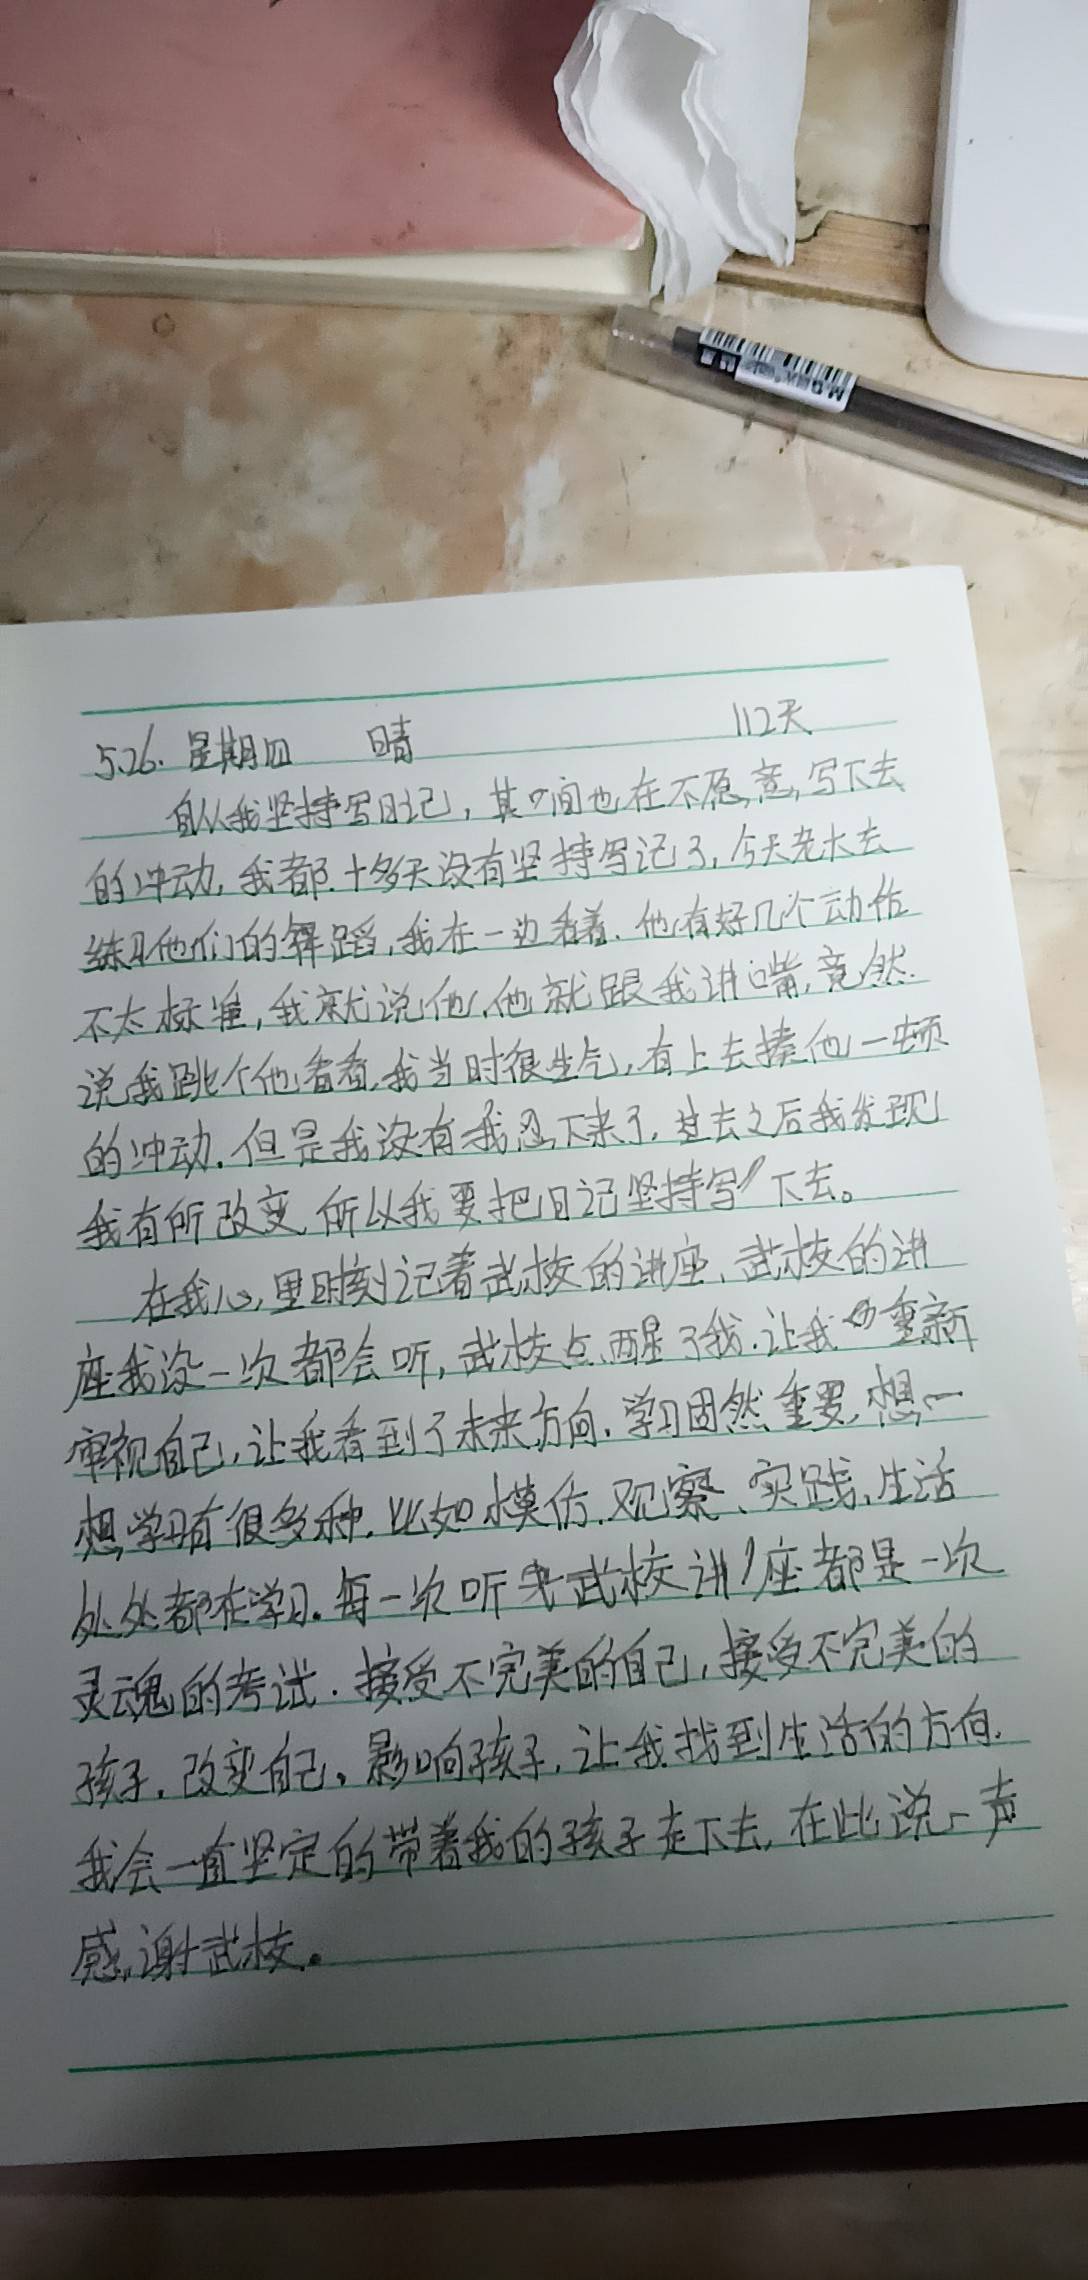 5.26. 星期四 晴 112天
自从我坚持写日记，其中间也在不愿意写下去
的冲动，我都十多天没有坚持写记了，今天老大去
练习他们的舞蹈，我在一边看着．他有好几个动作
不太标准，我就说他，他就跟我讲嘴，竟然．
说我跳个他看看，我当时很生气，有上去揍他一顿
的冲动．但是我没有我忍下来了，过去之后我发现
我有所改变，所以我要把日记坚持写下去。
在我心里时刻记着武校的讲座、武校的讲
座我没一次都会听，武校点醒了我．让我重新
审视自己，让我看到了未来方向．学习固然重要，想一
想学习有很多种．比如模仿．观察、实践、生活
处处都在学习．每一次听武校讲座都是一次
灵魂的考试．接受不完美的自己，接受不完美的
孩子．改变自己，影响孩子，让我找到生活的方向．
我会一直坚定的带着我的孩子走下去，在此说一声
感谢武校。
M&G